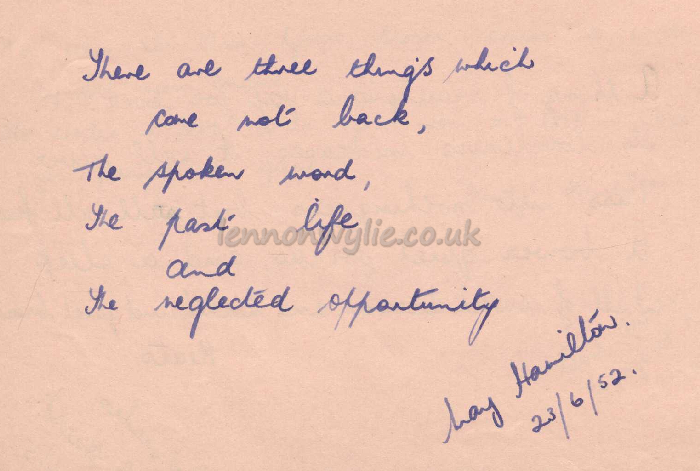 There are three things which
come not back,
The spoken word,
The past life
lennonwylie.co.uk
and
The neglected opportunity
May Hamilton.
23/6/52.